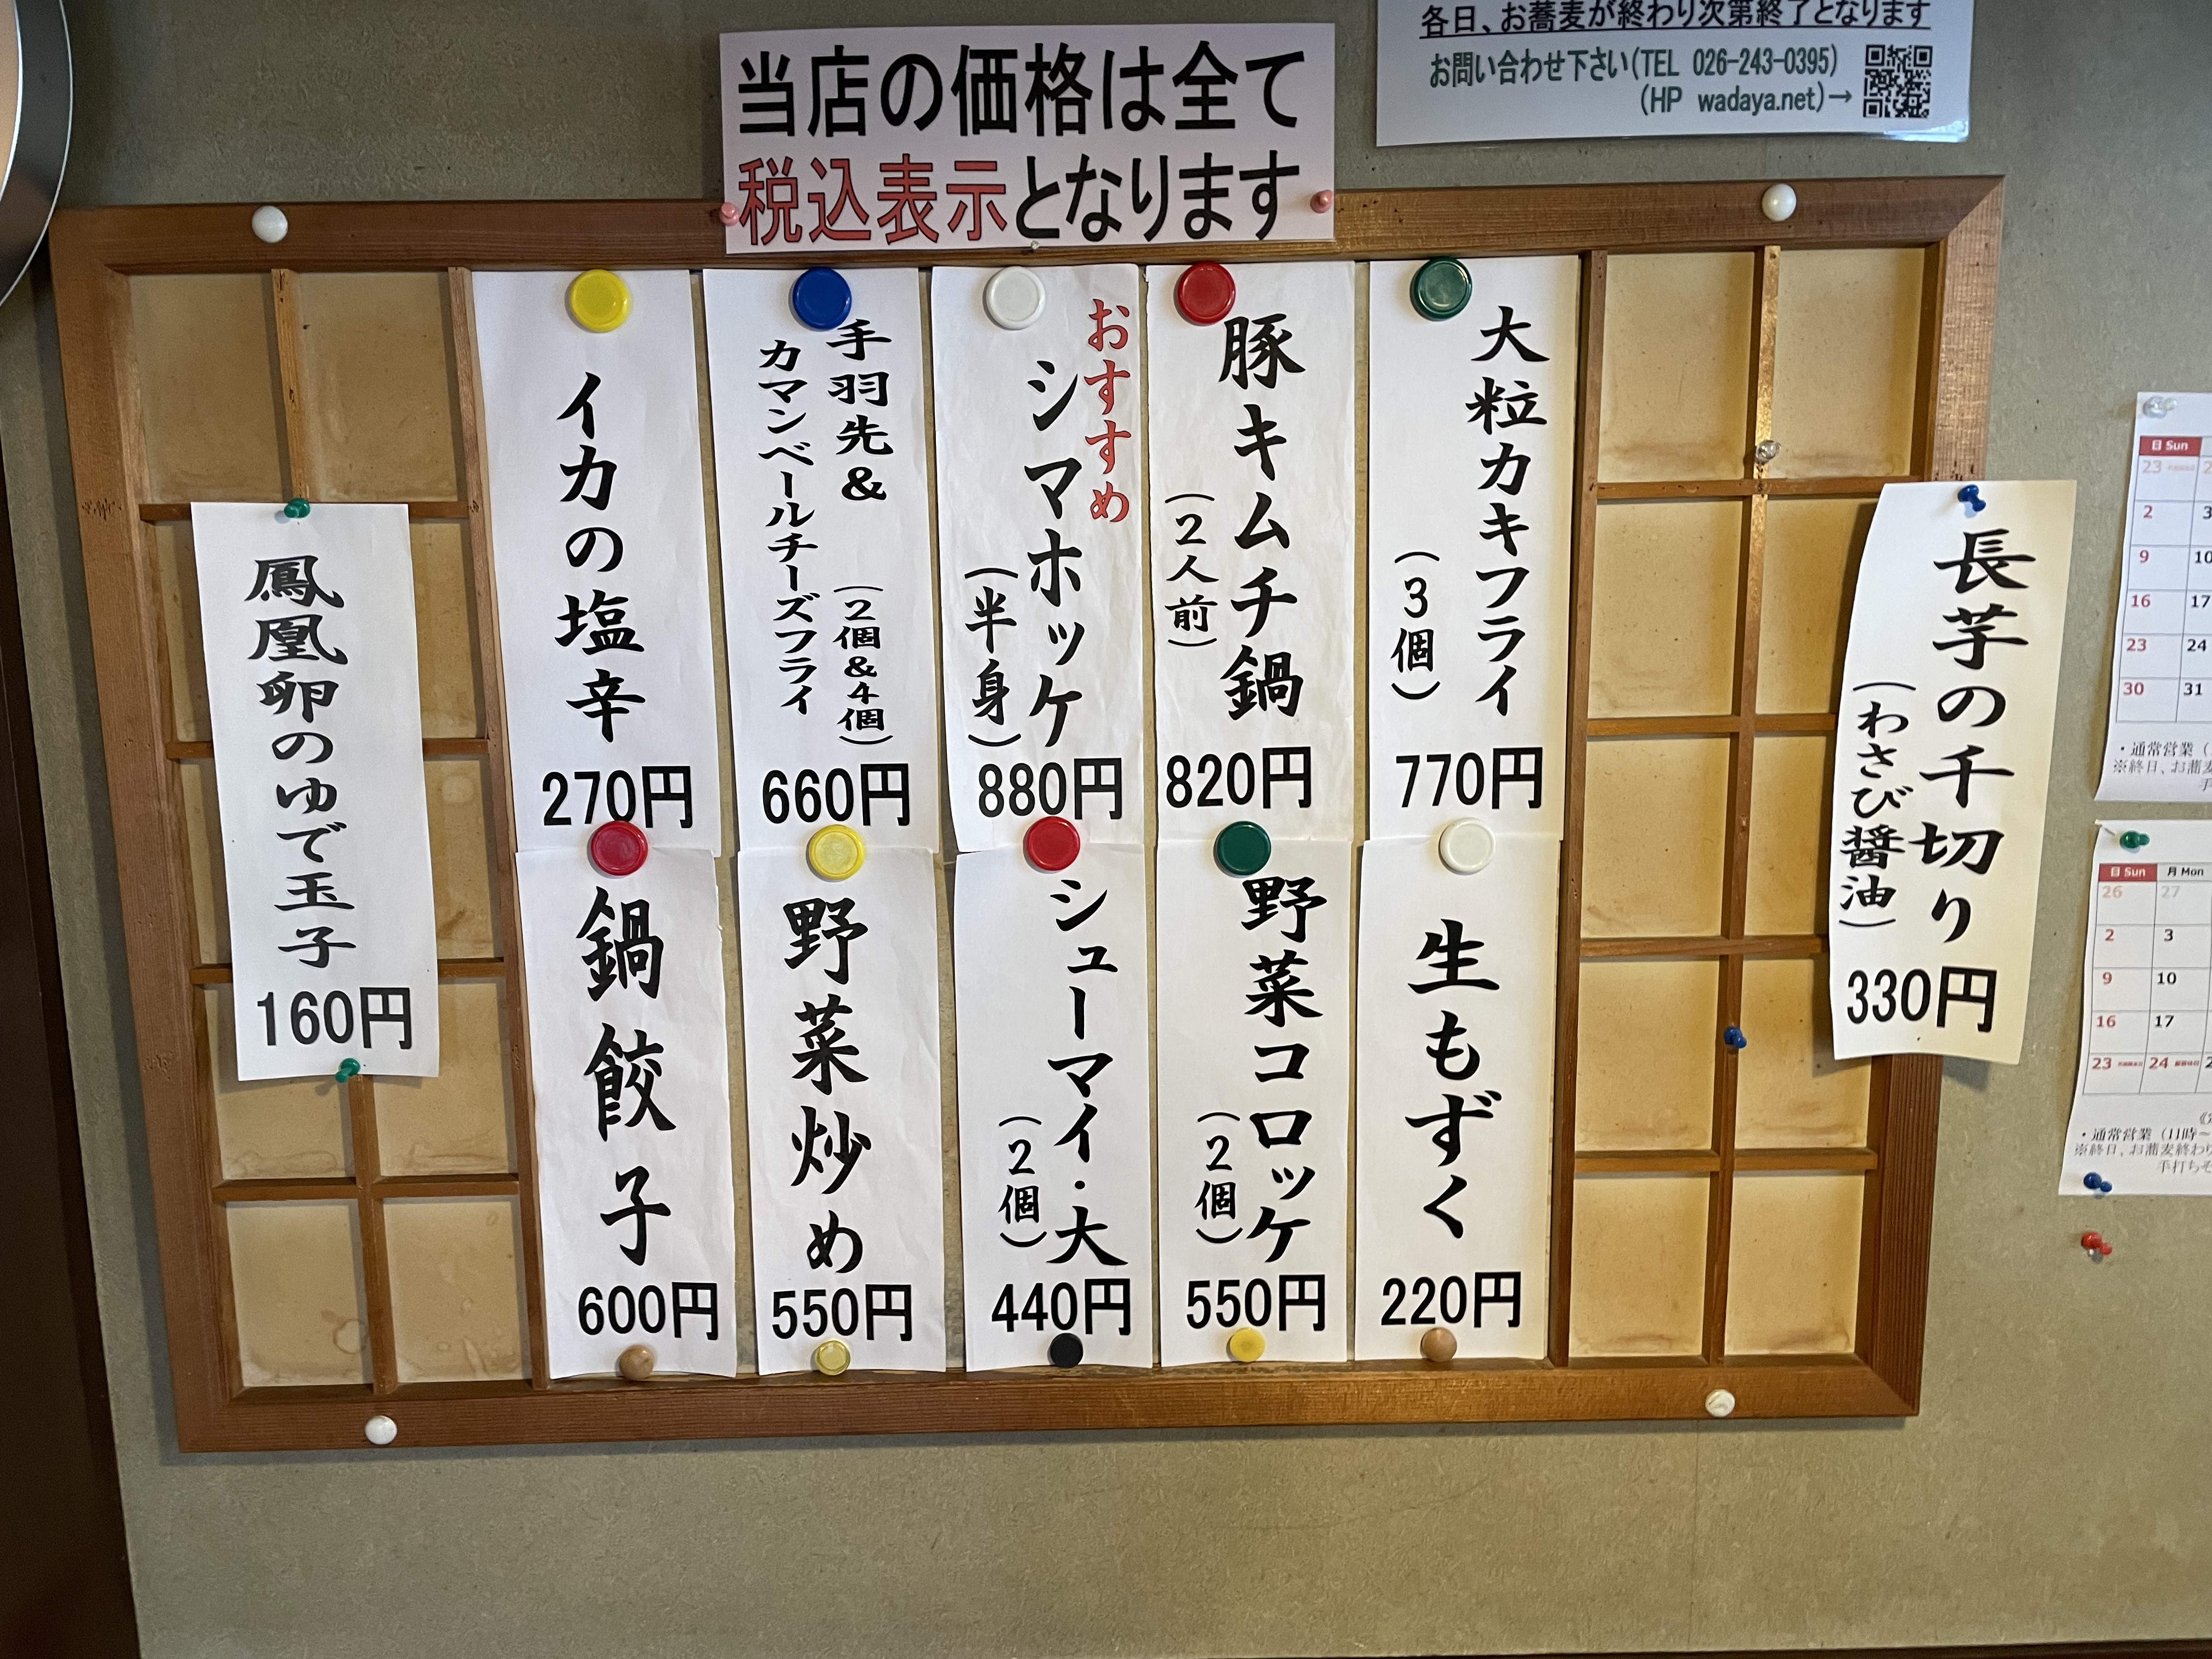 各日、お蕎麦が終わり次第終了となります
お問い合わせ下さい(TEL 026-243-0395)
(HP wadaya.net)→
当店の価格は全て
税込表示となります
長芋の千切り
(わさび醤油)
330円
大粒カキフライ
(3個)
770円
豚キムチ鍋
(2人前)
820円
おすすめ
シマホッケ
(半身)
880円
手羽先&
(2個&4個)
カマンベールチーズフライ
660円
イカの塩辛
270円
生もずく
220円
野菜コロッケ
(2個)
550円
シューマイ・大
(2個)
440円
野菜炒め
550円
鍋餃子
600円
鳳凰卵のゆで玉子
160円
日 Sun
23
2 3
9 10
16 17
23 24
30 31
・通常営業(
※終日、お蕎麦
日 Sun 月 Mon
26 27
2 3
9 10
16 17
23 24
・通常営業(11時～
※終日、お蕎麦終わり
手打ちそ